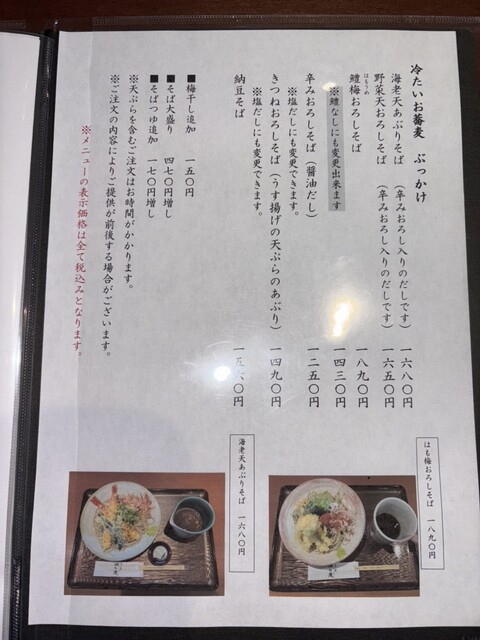 冷たいお蕎麦　ぶっかけ
海老天あぶりそば　（辛みおろし入りのだしです）　一六八〇円
野菜天おろしそば　（辛みおろし入りのだしです）　一六五〇円
はもうめ
鱧梅おろしそば　一八九〇円
※鱧なしにも変更出来ます　一四三〇円
辛みおろしそば（醤油だし）　一二五〇円
※塩だしにも変更できます。
きつねおろしそば（うす揚げの天ぷらのあぶり）　一四九〇円
※塩だしにも変更できます。
納豆そば　一五六〇円
■梅干し追加　一五〇円
■そば大盛り　四七〇円増し
■そばつゆ追加　一七〇円増し
※天ぷらを含むご注文はお時間がかかります。
※ご注文の内容によりご提供が前後する場合がございます。
※メニューの表示価格は全て税込みとなります。
はも梅おろしそば　一八九〇円
海老天あぶりそば　一六八〇円